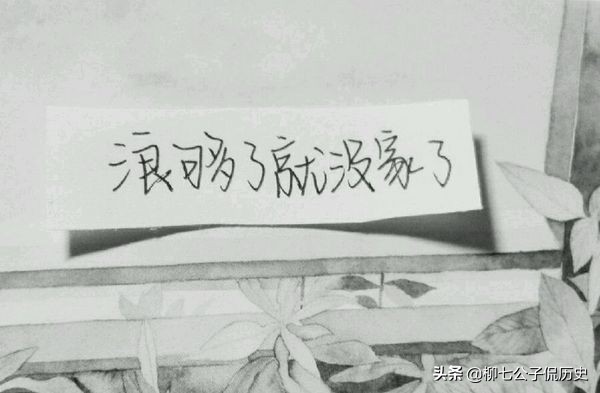 浪够了就没家了
头条 @柳七公子侃历史